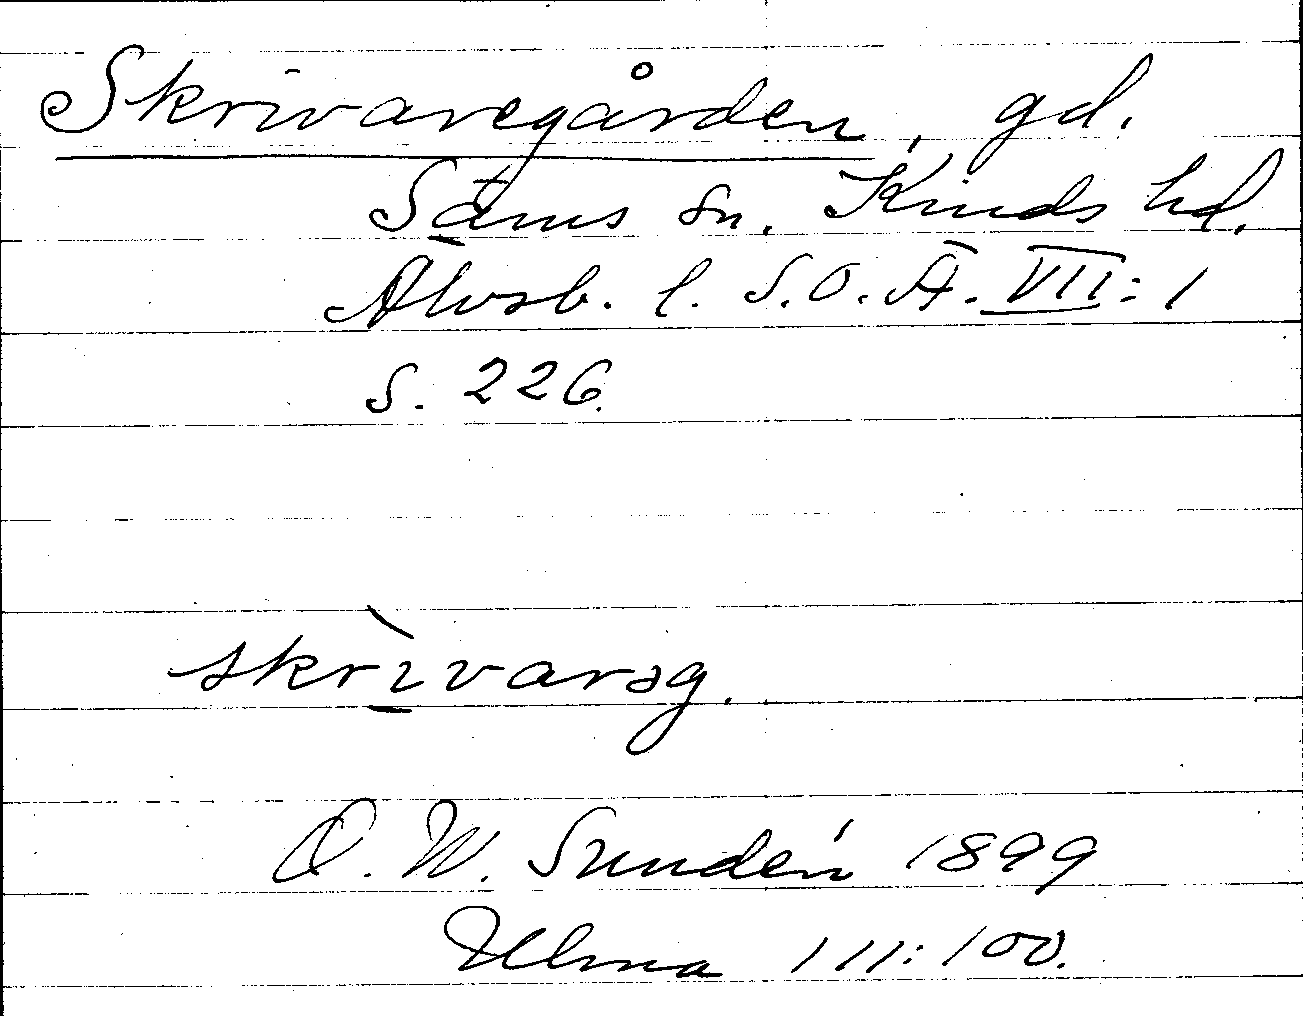 Skrivaregården, gd.
Säms sn. Kinds hd.
Älvsb. l. S.O.Ä. VII: 1
S. 226.
skrìvarəg.
D. W. Sundén 1899
Ulma 111:100.